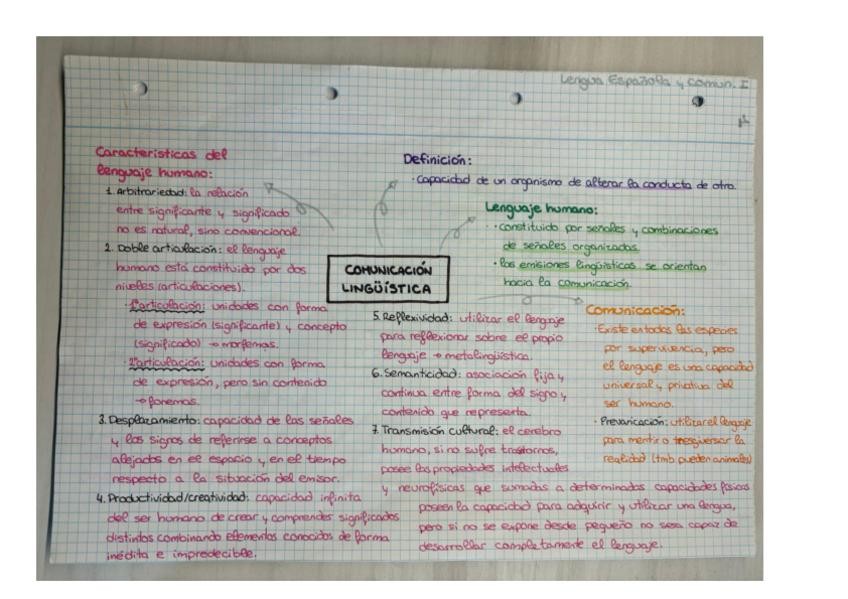 Lengua Española y comun. I
Características del
lenguaje humano:
1. Arbitrariedad: la relación
entre significante y significado
no es natural, sino convencional.
2. Doble articulación: el lenguaje
humano está constituido por dos
niveles (articulaciones).
· 1ªarticulación: unidades con forma
de expresión (significante) y concepto
(significado) → morfemas.
· 2ªarticulación: unidades con forma
de expresión, pero sin contenido
→ fonemas.
3. Desplazamiento: capacidad de las señales
y los signos de referirse a conceptos
alejados en el espacio y en el tiempo
respecto a la situación del emisor.
4. Productividad/creatividad: capacidad infinita
del ser humano de crear y comprender significados
distintos combinando elementos conocidos de forma
inédita e impredecible.
Definición:
· Capacidad de un organismo de alterar la conducta de otro.
Lenguaje humano:
· constituido por señales y combinaciones
de señales organizadas.
· las emisiones lingüísticas se orientan
hacia la comunicación.
COMUNICACIÓN
LINGÜÍSTICA
5. Reflexividad: utilizar el lenguaje
para reflexionar sobre el propio
lenguaje → metalingüística.
6. Semanticidad: asociación fija y
continua entre forma del signo y
contenido que representa.
7. Transmisión cultural: el cerebro
humano, si no sufre trastornos,
posee las propiedades intelectuales
y neurofísicas que sumadas a determinadas capacidades físicas
poseen la capacidad para adquirir y utilizar una lengua,
pero si no se expone desde pequeño no sera capaz de
desarrollar completamente el lenguaje.
Comunicación:
· Existe en todas las especies
por supervivencia, pero
el lenguaje es una capacidad
universal y privativa del
ser humano.
· Prevaricación: utilizar el lenguaje
para mentir o tresgiversar la
realidad (tmb pueden animales)